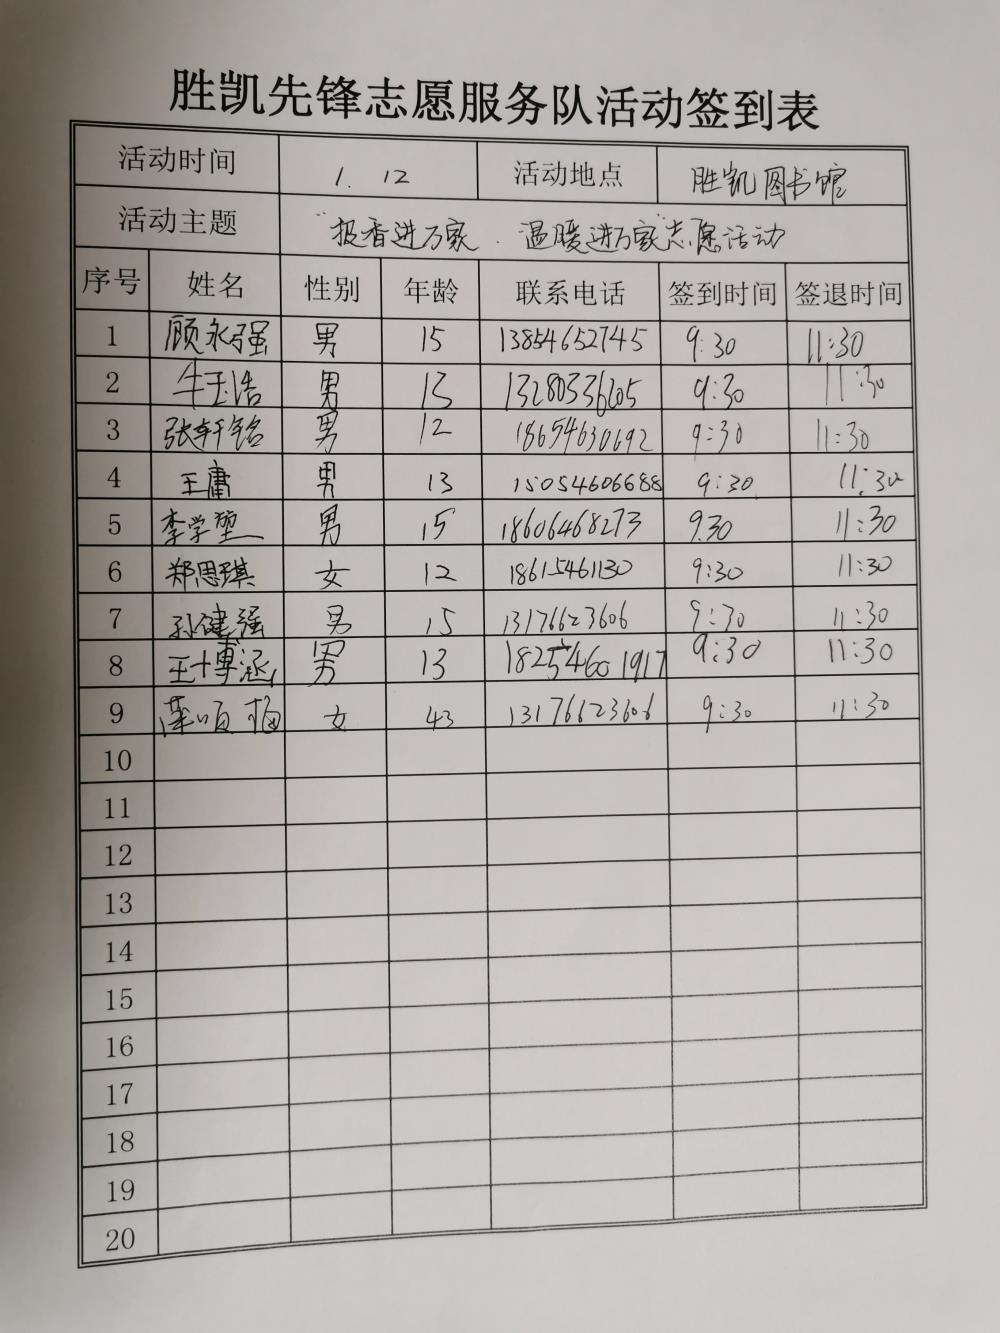 胜凯先锋志愿服务队活动签到表
活动时间 1.12 活动地点 胜凯图书馆
活动主题 "报香进万家.温暖进万家"志愿活动
序号 姓名 性别 年龄 联系电话 签到时间 签退时间
1 顾永强 男 15 13854652745 9:30 11:30
2 牛玉浩 男 13 13280336605 9:30 11:30
3 张轩铭 男 12 18654630692 9:30 11:30
4 王庸 男 13 15054606688 9:30 11:30
5 李学堃 男 15 18606468273 9.30 11:30
6 郑思琪 女 12 18615461130 9:30 11:30
7 孙健强 男 15 13176623606 9:30 11:30
8 王博涵 男 13 18254601917 9:30 11:30
9 梅 女 43 13176623606 9:30 11:30
10
11
12
13
14
15
16
17
18
19
20